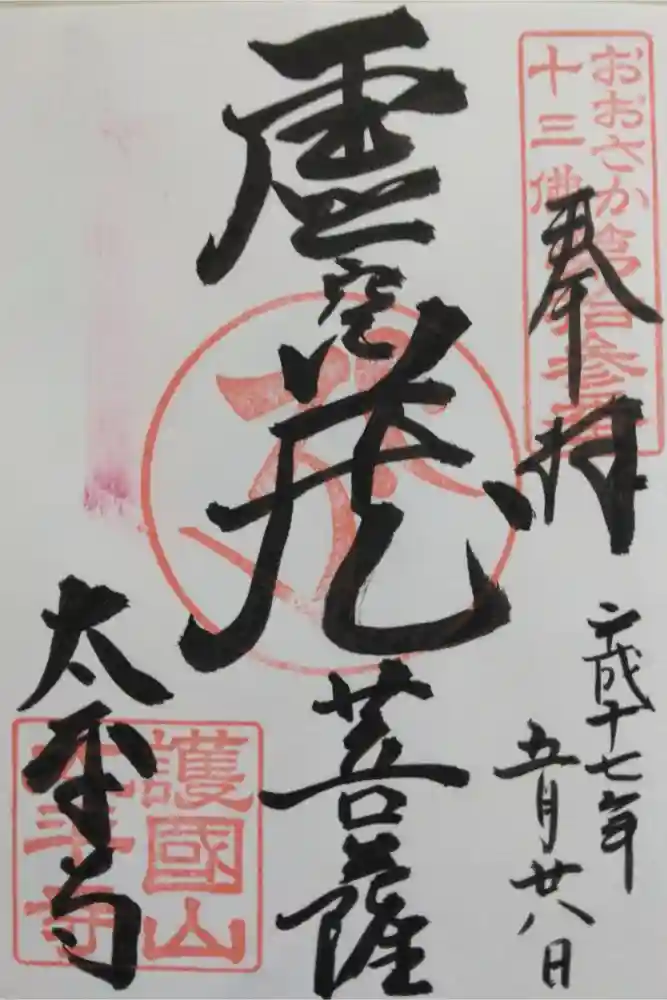 おおさか
十三佛
第拾参番
奉拝
平成十七年
五月廿八日
虚空蔵菩薩
太平寺
護國山
太平寺